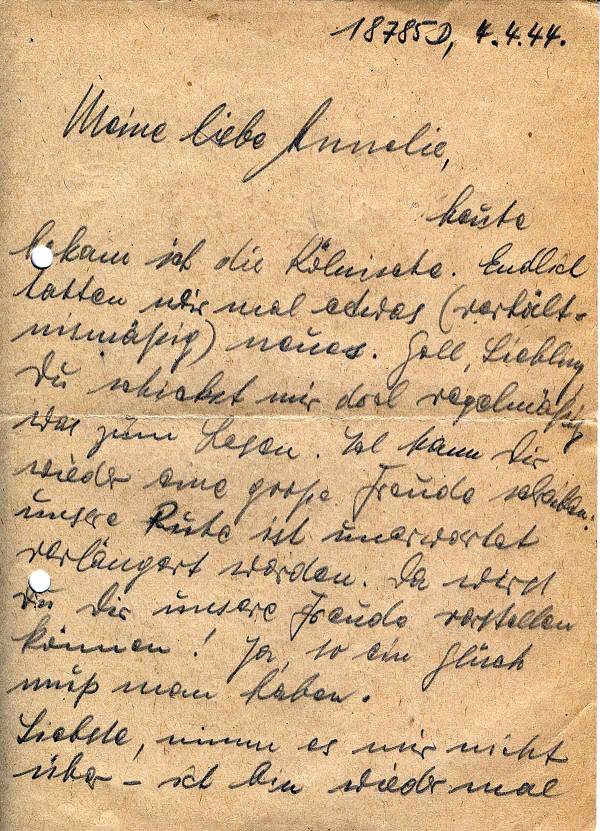 18785D, 4.4.44.
Meine liebe Annelie,
heute
bekam ich die Kölnische. Endlich
hatten wir mal etwas (verhält-
nismäßig) neues. Gell, Liebling,
Du schickst mir doch regelmäßig
was zum Lesen. Ich kann Dir
wieder eine große Freude schreiben:
unsere Ruhe ist unerwartet
verlängert worden. Da wirst
Du Dir unsere Freude vorstellen
können! Ja, so ein Glück
muß man haben.
Liebste, nimm es mir nicht
über – ich bin wieder mal